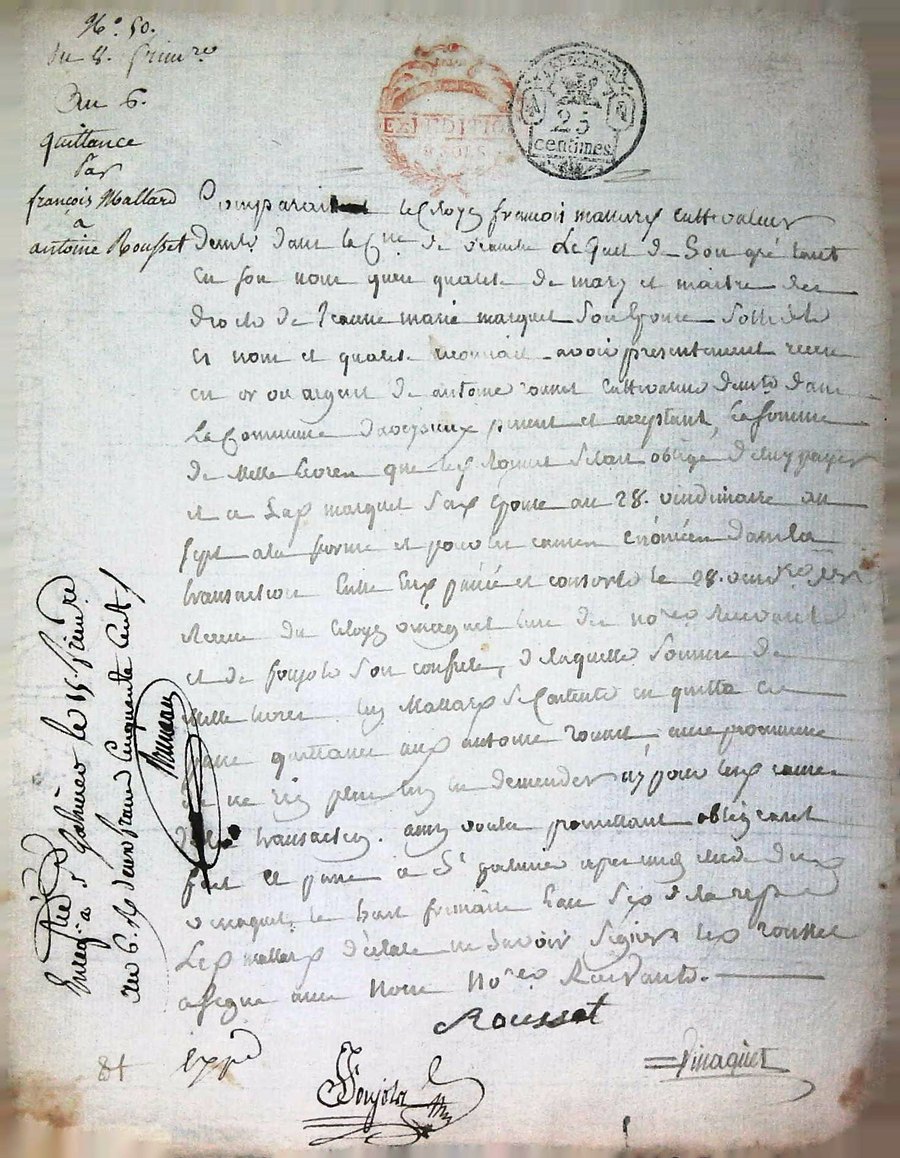 N.o 50.
du 8. frim.re
an 6.
quittance
par
françois Mallard
à
antoine Rousset
EXPÉDITION
SOLS
25
centimes
Comparait le Citoyen françois mallard Cultivateur
demt. dans la Cne. de Lequel de Son gré tant
en son nom qu'en qualité de mary et maitre des
droits de Jeanne marie marquet Son Epouse
et nom et qualité reconnait avoir presentement receu
en or ou argent de antoine rousset Cultivateur demt. dans
La Commune present et acceptant, La Somme
de Mille livres que led. Rousset Setait obligé de luy payer
et a Lad. marquet Sad. Epouse au 28. vindimiaire an
Sept a la forme et pour les causes enoncées dans la
transaction Entre Eux passée et consorts le 28.
Receue du Citoyen l'un des no.res
et de foujols Son confrere, de laquelle Somme de
Mille livres led. Mallard Se Contente en quitte
quittance aud. antoine rousset avec promesse
de ne rien plus luy en demander ny pour les causes
de la transaction. ainsy voulu promettant obligeant
fait et passé à St. galmier
le huit frimaire l'an Six de la rep.
Led. mallard déclaré ne Savoir Signer led. rousset
a Signé avec Nous No.res Recevants.
Rousset
Expd.
Foujols
Pinaquet
81
Enreg. a St. Galmier le 15 frimaire
an 6. R. deux francs Cinquante Cent.